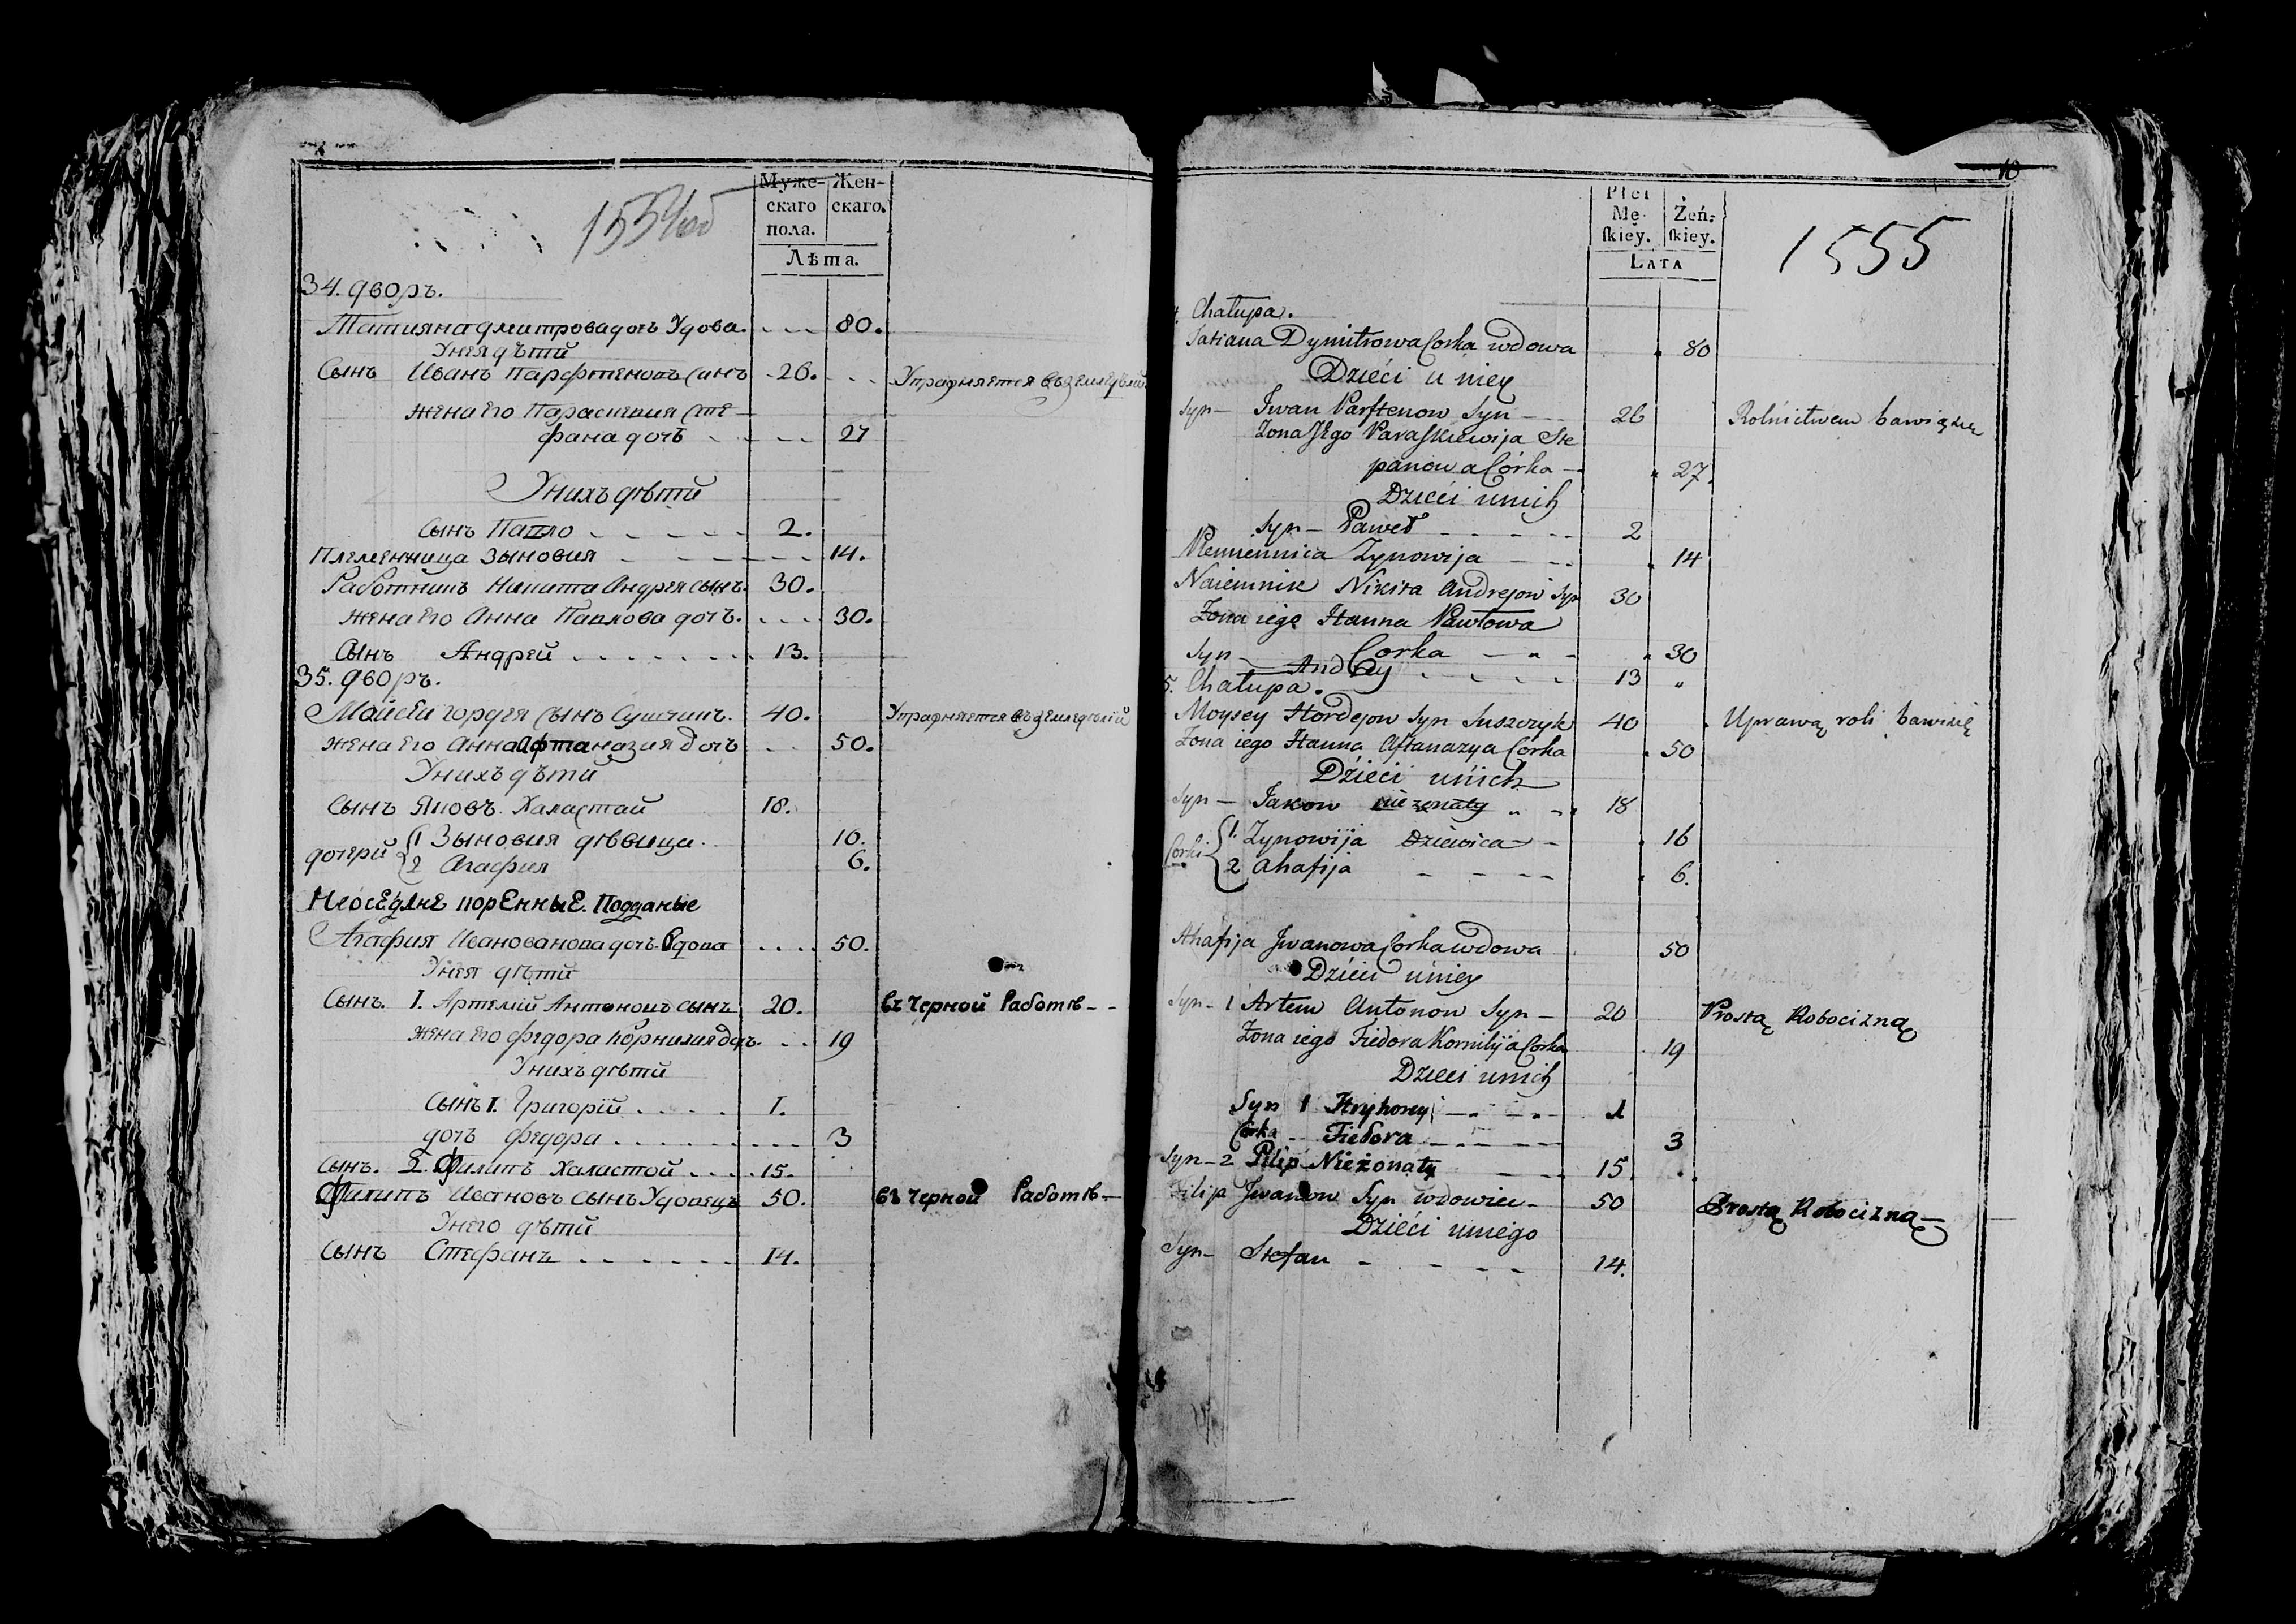 1554об
Муже- Жен-
скаго скаго.
пола.
Лѣта.
34. дворъ.
Татияна дмитрова дочь Удова. 80.
Унея дѣти
Сынъ Иванъ Парфтеновъ Сынъ 26. Упражняется въ земледѣлiи
жена Его Параскевия Сте-
фана дочь 27
Унихъ дѣти
Сынъ Павло 2.
Племенница Зыновия 14.
Работникъ Никита Андрея сынъ. 30.
жена Его Анна Павлова дочь. 30.
Сынъ Андрей 13.
35. дворъ.
Мойсѣи гордея Сынъ Сушчикъ. 40. Упражняется въ земледѣлiй
жена Его Анна Афтаназия дочь 50.
Унихъ дѣти
Сынъ Яковъ. Халастай 18.
дочерй 1 Зыновия дѣвица. 10.
2 Агафия 6.
Неосѣдлые коренные. Подданые
Агафия Иванованова дочь. Вдова 50.
Унея дѣти
Сынъ. 1. Артемiй Антоновъ сынъ 20. въ черной Работѣ
жена Его федора корнилия дочь. 19
Унихъ дѣти
Сынъ 1. Григорiй 1.
дочь федора 3
Сынъ. 2. Филипъ Халастой 15.
Филипъ Ивановъ Сынъ Удовецъ 50. въ черной Работѣ
Унего дѣти
Сынъ Стефанъ 14.
10
Płci
Mę- Żeń-
ſkiey. ſkiey.
LATA
1555
Chałupa.
Tatiana Dymitrowa Corka wdowa 80
Dzieći u niey
Syn Jwan Parftenow Syn 26 Rolnictwem bawiąsię
Zona Jego Paraskiewija Ste
panowa Córka 27.
Dzieći unich
Syn Paweł 2
Plemiennica Zynowija 14
Naiemnik Nikita Andrejow Syn 30
Zona iego Hanna Pawłowa
Corka 30
Syn Andrey 13
5. Chałupa.
Moysey Hordejow Syn Suszczyk 40 Uprawą roli bawisię
Zona iego Hanna Aftanazya Corka 50
Dzieći unich
Syn Jakow nieżonaty 18
Corki 1. Zynowija Dziewica 16
2 Ahafija 6.
Ahafija Jwanowa Corka wdowa 50
Dzieći uniey
Syn 1 Artem Antonow Syn 20 Prostą Robocizną
Zona iego Fiedora Kornilija Corka 19
Dzieci unich
Syn 1 Hryhorey 1
Corka Fiedora 3
Syn 2 Pilip Nieżonaty 15
Filip Jwanow Syn wdowiec 50 Prostą Robocizną
Dzieći uniego
Syn Stefan 14.